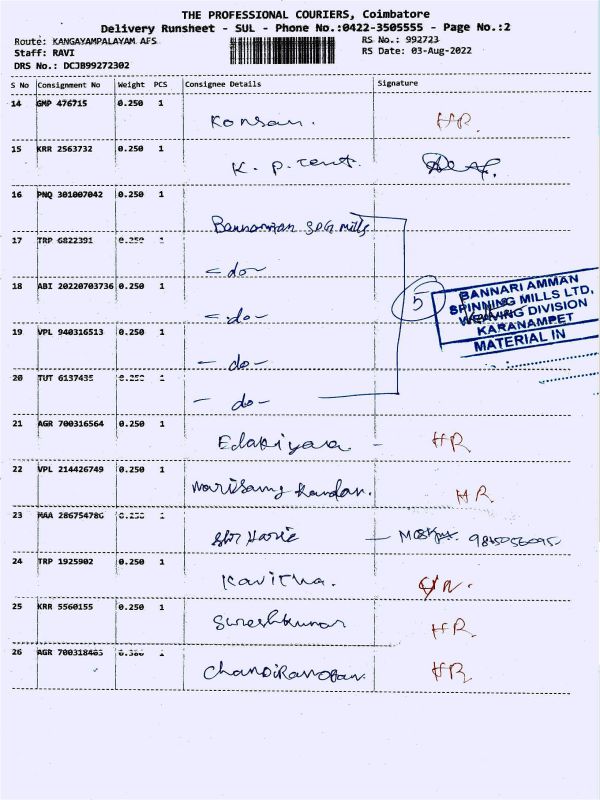 THE PROFESSIONAL COURIERS, Coimbatore
Delivery Runsheet - SUL - Phone No.:0422-3505555 - Page No.:2
Route: KANGAYAMPALAYAM AFS
RS No.: 992723
Staff: RAVI
RS Date: 03-Aug-2022
DRS No.: DCJB99272302
S No Consignment No Weight PCS Consignee Details Signature
14 GMP 476715 0.250 1
Konsan. HR.
15 KRR 2563732 0.250 1
K. P. Cent.
16 PNQ 301007042 0.250 1
Bannariman SPG mills
17 TRP 6822391 0.250 1
-do-
18 ABI 20220703736 0.250 1
-do-
5
BANNARI AMMAN
SPINNING MILLS LTD,
WEAVING DIVISION
KARANAMPET
MATERIAL IN
19 VPL 940316513 0.250 1
- do-
20 TUT 6137435 0.250 1
- do-
21 AGR 700316564 0.250 1
HR
22 VPL 214426749 0.250 1
Kandan. HR.
23 MAA 286754786 0.250 1
Harie
24 TRP 1925902 0.250 1
Kavitha.
25 KRR 5560155 0.250 1
Sureshkumar HR.
26 AGR 700318465 0.300 1
HR.